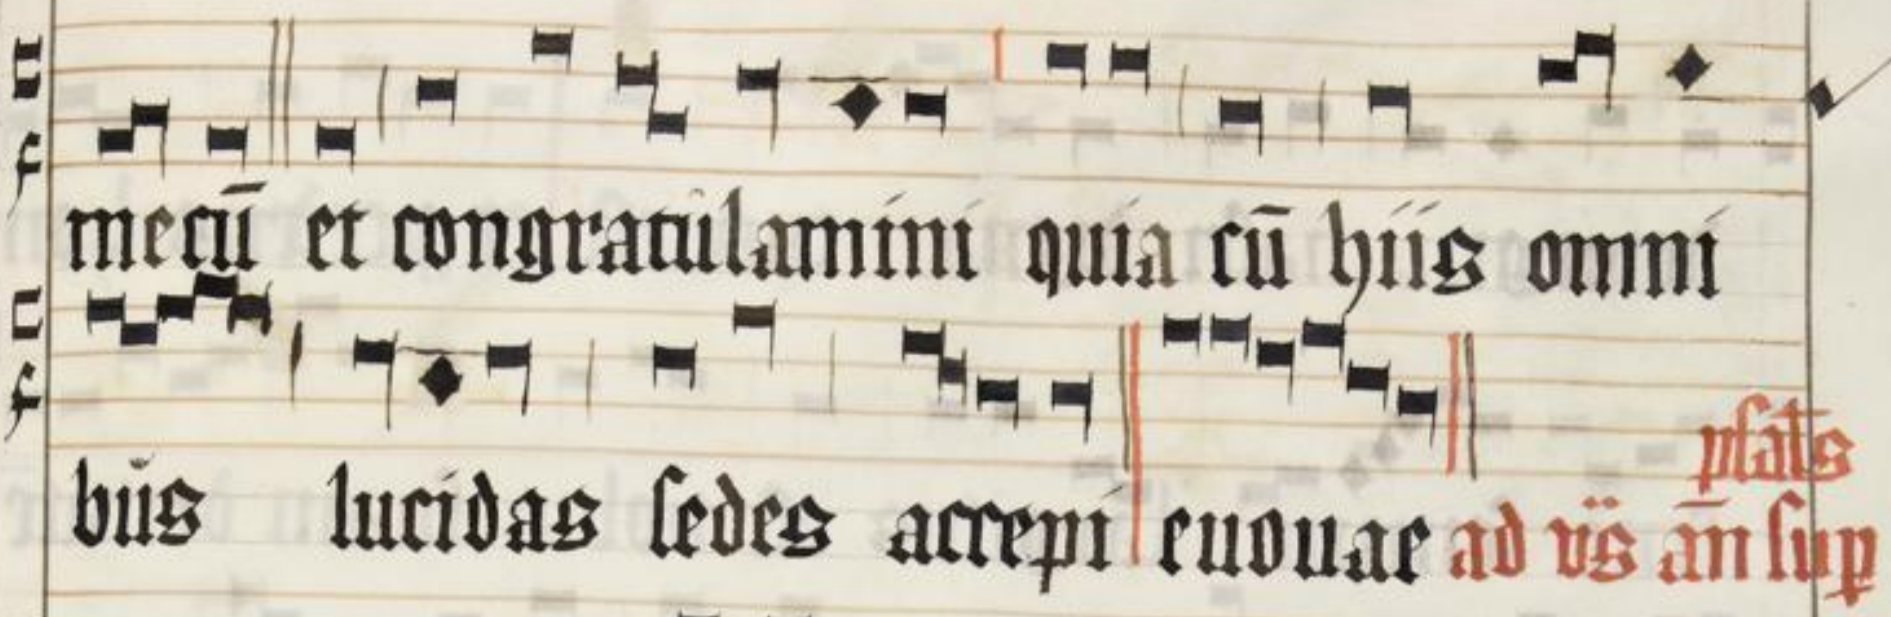 mecū et congratulamini quia cū hiis omni
bus lucidas sedes accepi euouae ad vs̈ an̄ sup
psat̄s